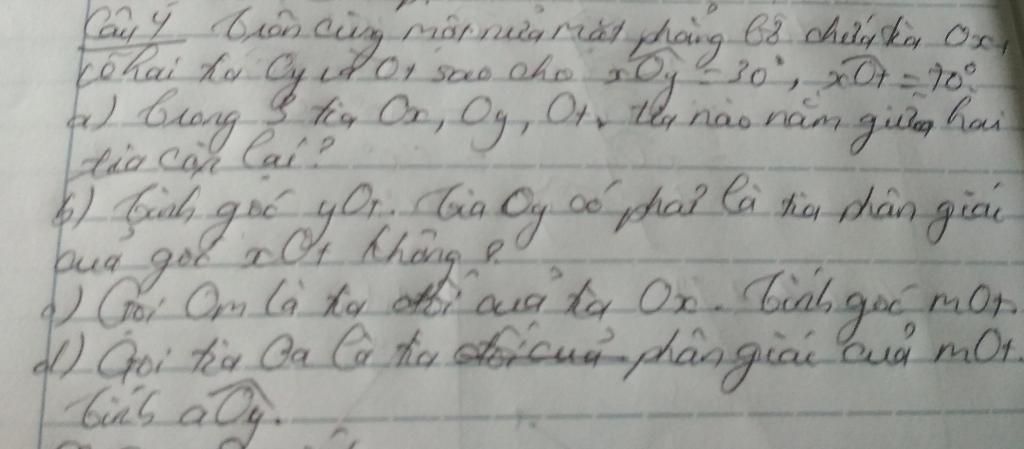 Câu 4 Trên cùng một nửa mặt phẳng bờ chứa tia Ox,
có hai tia Oy và Ot sao cho xOy = 30°, xOt = 70°.
a) Trong 3 tia Ox, Oy, Ot, tia nào nằm giữa hai
tia còn lại?
b) Tính góc yOt. Tia Oy có phải là tia phân giác
của góc xOt không?
c) Gọi Om là tia đối của tia Ox. Tính góc mOt.
d) Gọi tia Oa là tia phân giác của mOt.
Tính aOy.